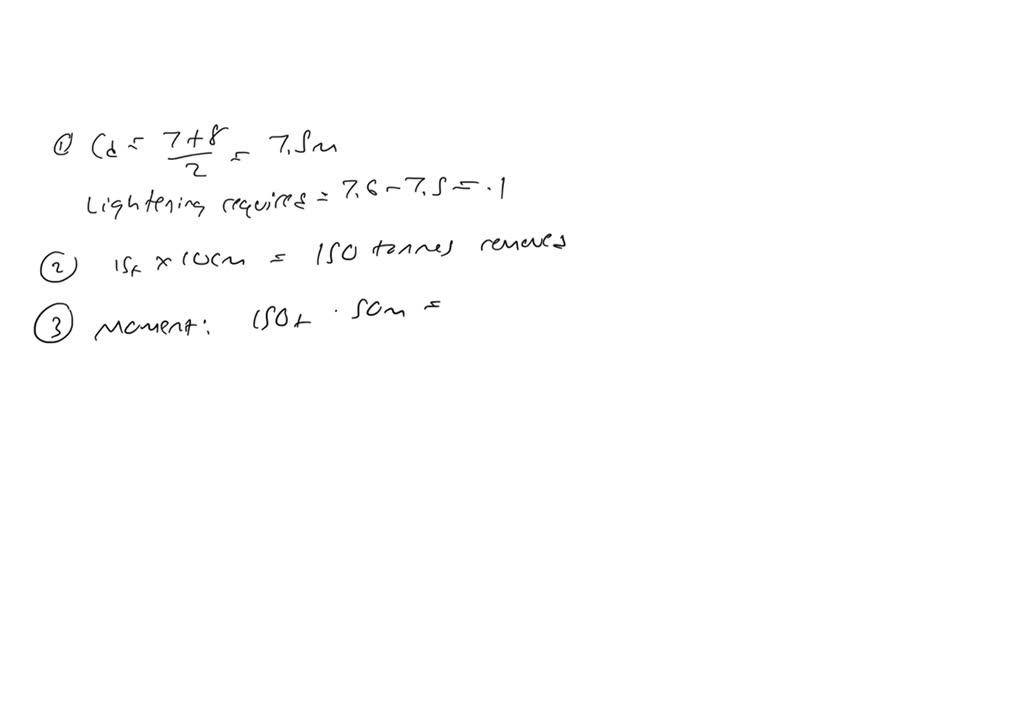 ① Cd = 7+8/2 = 7.5m
Lightening required = 7.6 - 7.5 = .1
② 15t × 10cm = 150 tonnes removed
③ Moment: 150t · 50m =